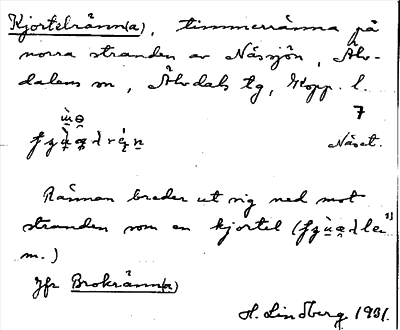 Kjortelränn(a), timmerränna på
norra stranden av Nässjön, Älv-
dalens sn, Älvdals tg, Kopp. l.
7
Näset.
Rännan breder ut sig ned mot
stranden som en kjortel (
m.)
Jfr Brokränn(a)
H. Lindberg 1931.